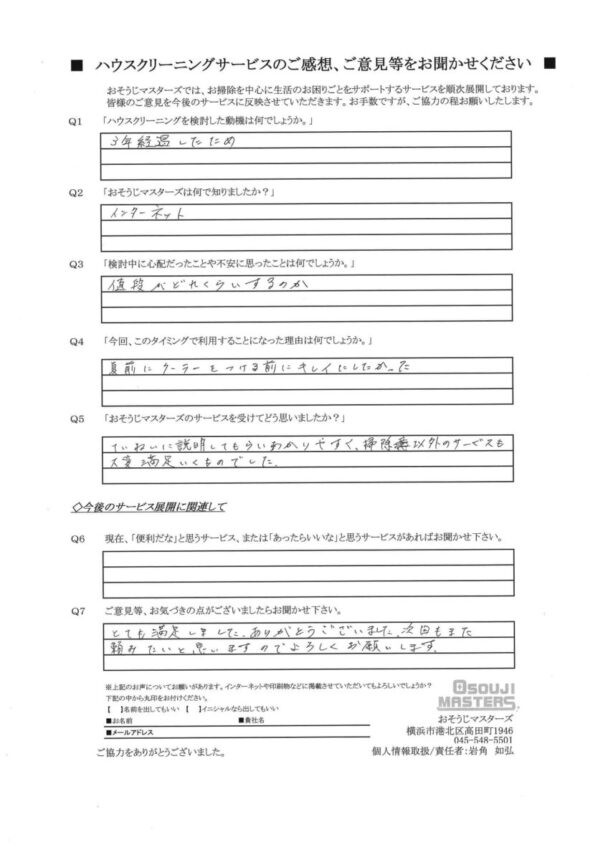 ■ ハウスクリーニングサービスのご感想、ご意見等をお聞かせください ■
おそうじマスターズでは、お掃除を中心に生活のお困りごとをサポートするサービスを順次展開しております。
皆様のご意見を今後のサービスに反映させていただきます。お手数ですが、ご協力の程お願いしたします。
Q1 「ハウスクリーニングを検討した動機は何でしょうか。」
3年経過したため
Q2 「おそうじマスターズは何で知りましたか？」
インターネット
Q3 「検討中に心配だったことや不安に思ったことは何でしょうか。」
値段がどれくらいするのか
Q4 「今回、このタイミングで利用することになった理由は何でしょうか。」
夏前にクーラーをつける前にキレイにしたかった
Q5 「おそうじマスターズのサービスを受けてどう思いましたか？」
ていねいに説明してもらいわかりやすく、掃除以外のサービスも
大変満足いくものでした。
◇今後のサービス展開に関連して
Q6 現在、「便利だな」と思うサービス、または「あったらいいな」と思うサービスがあればお聞かせ下さい。
Q7 ご意見等、お気づきの点がございましたらお聞かせ下さい。
とても満足しました。ありがとうございました。次回もまた
頼みたいと思いますのでよろしくお願いします。
※上記のお声についてお願いがあります。インターネットや印刷物などに掲載させていただいてもよろしいでしょうか？
下記の中から丸印をお付けください。
【　】名前を出してもいい　【　】イニシャルなら出してもいい
■お名前　■貴社名
■メールアドレス
ご協力をありがとうございました。
OSOUJI
MASTERS
おそうじマスターズ
横浜市港北区高田町1946
045-548-5501
個人情報取扱/責任者:岩角 如弘